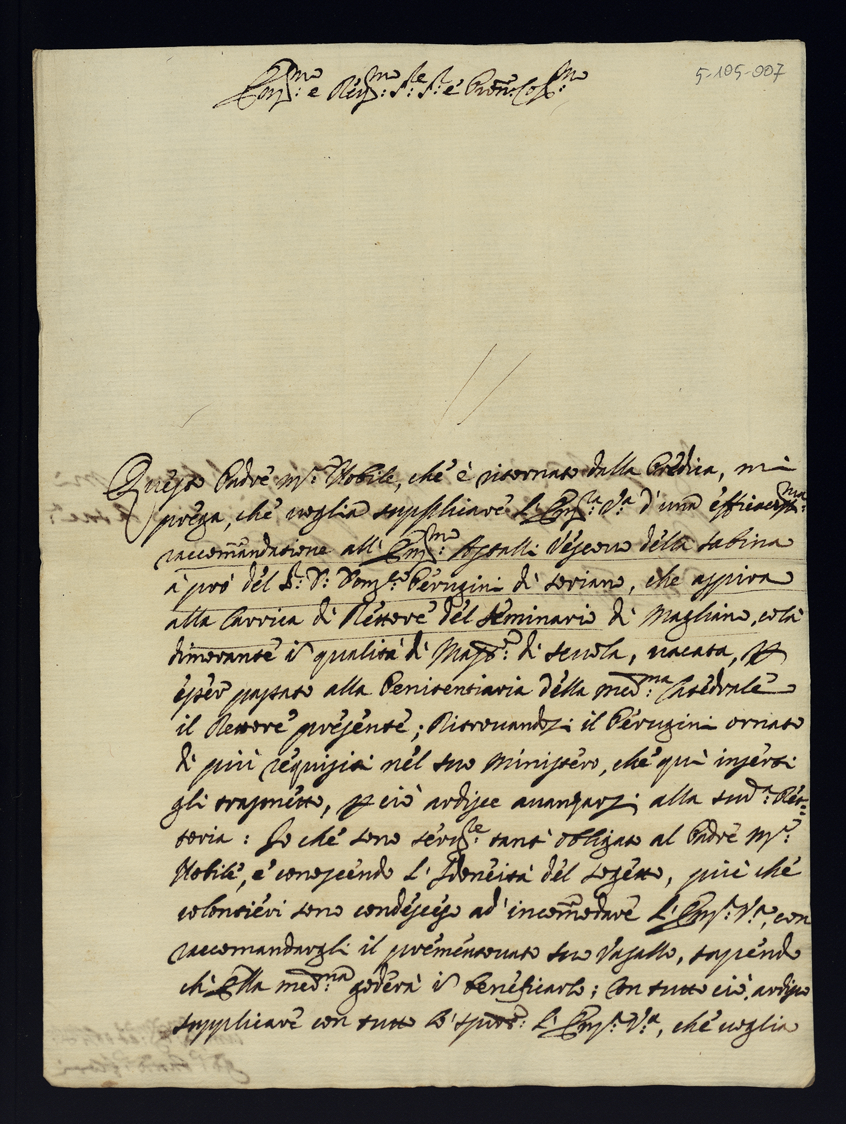 5-105-007
Em.mo e Rev.mo S.re S.r e Pron Col.mo
Questo Padre M.ro Nobile, che è ritornato dalla Predica, mi
prega, che voglia supplicare l'Em.za V.a d'una efficaciss.ma
raccomandazione all' Em.mo Vescovo della Sabina
à prò del S.r D. Perugini di Soriano, che aspira
alla Carrica di Rettore del Seminario di Magliano, colà
dimorante in qualità di Mast.ro di scuola, vacata, p
esser passato alla Penitenziaria della med.ma Catedrale
il Rettore presente; Ritrovandosi il Perugini ornato
di più requisiti nel suo Ministero, che quì inserti
gli trasmetto, p ciò ardisce avanzarsi alla sud.a Ret-
toria: Io che sono tant' obligato al Padre M.ro
Nobile, e conoscendo l' Idoneità del sogetto, più che
volentieri sono condesceso ad' incommodare l' Em.a V.a, con
raccomandargli il prementovato suo Vasallo, sapendo
ch' Ella med.ma goderà in beneficarlo; Con tutto ciò, ardisco
supplicare con tutto lo l' Em.a V.a, che voglia